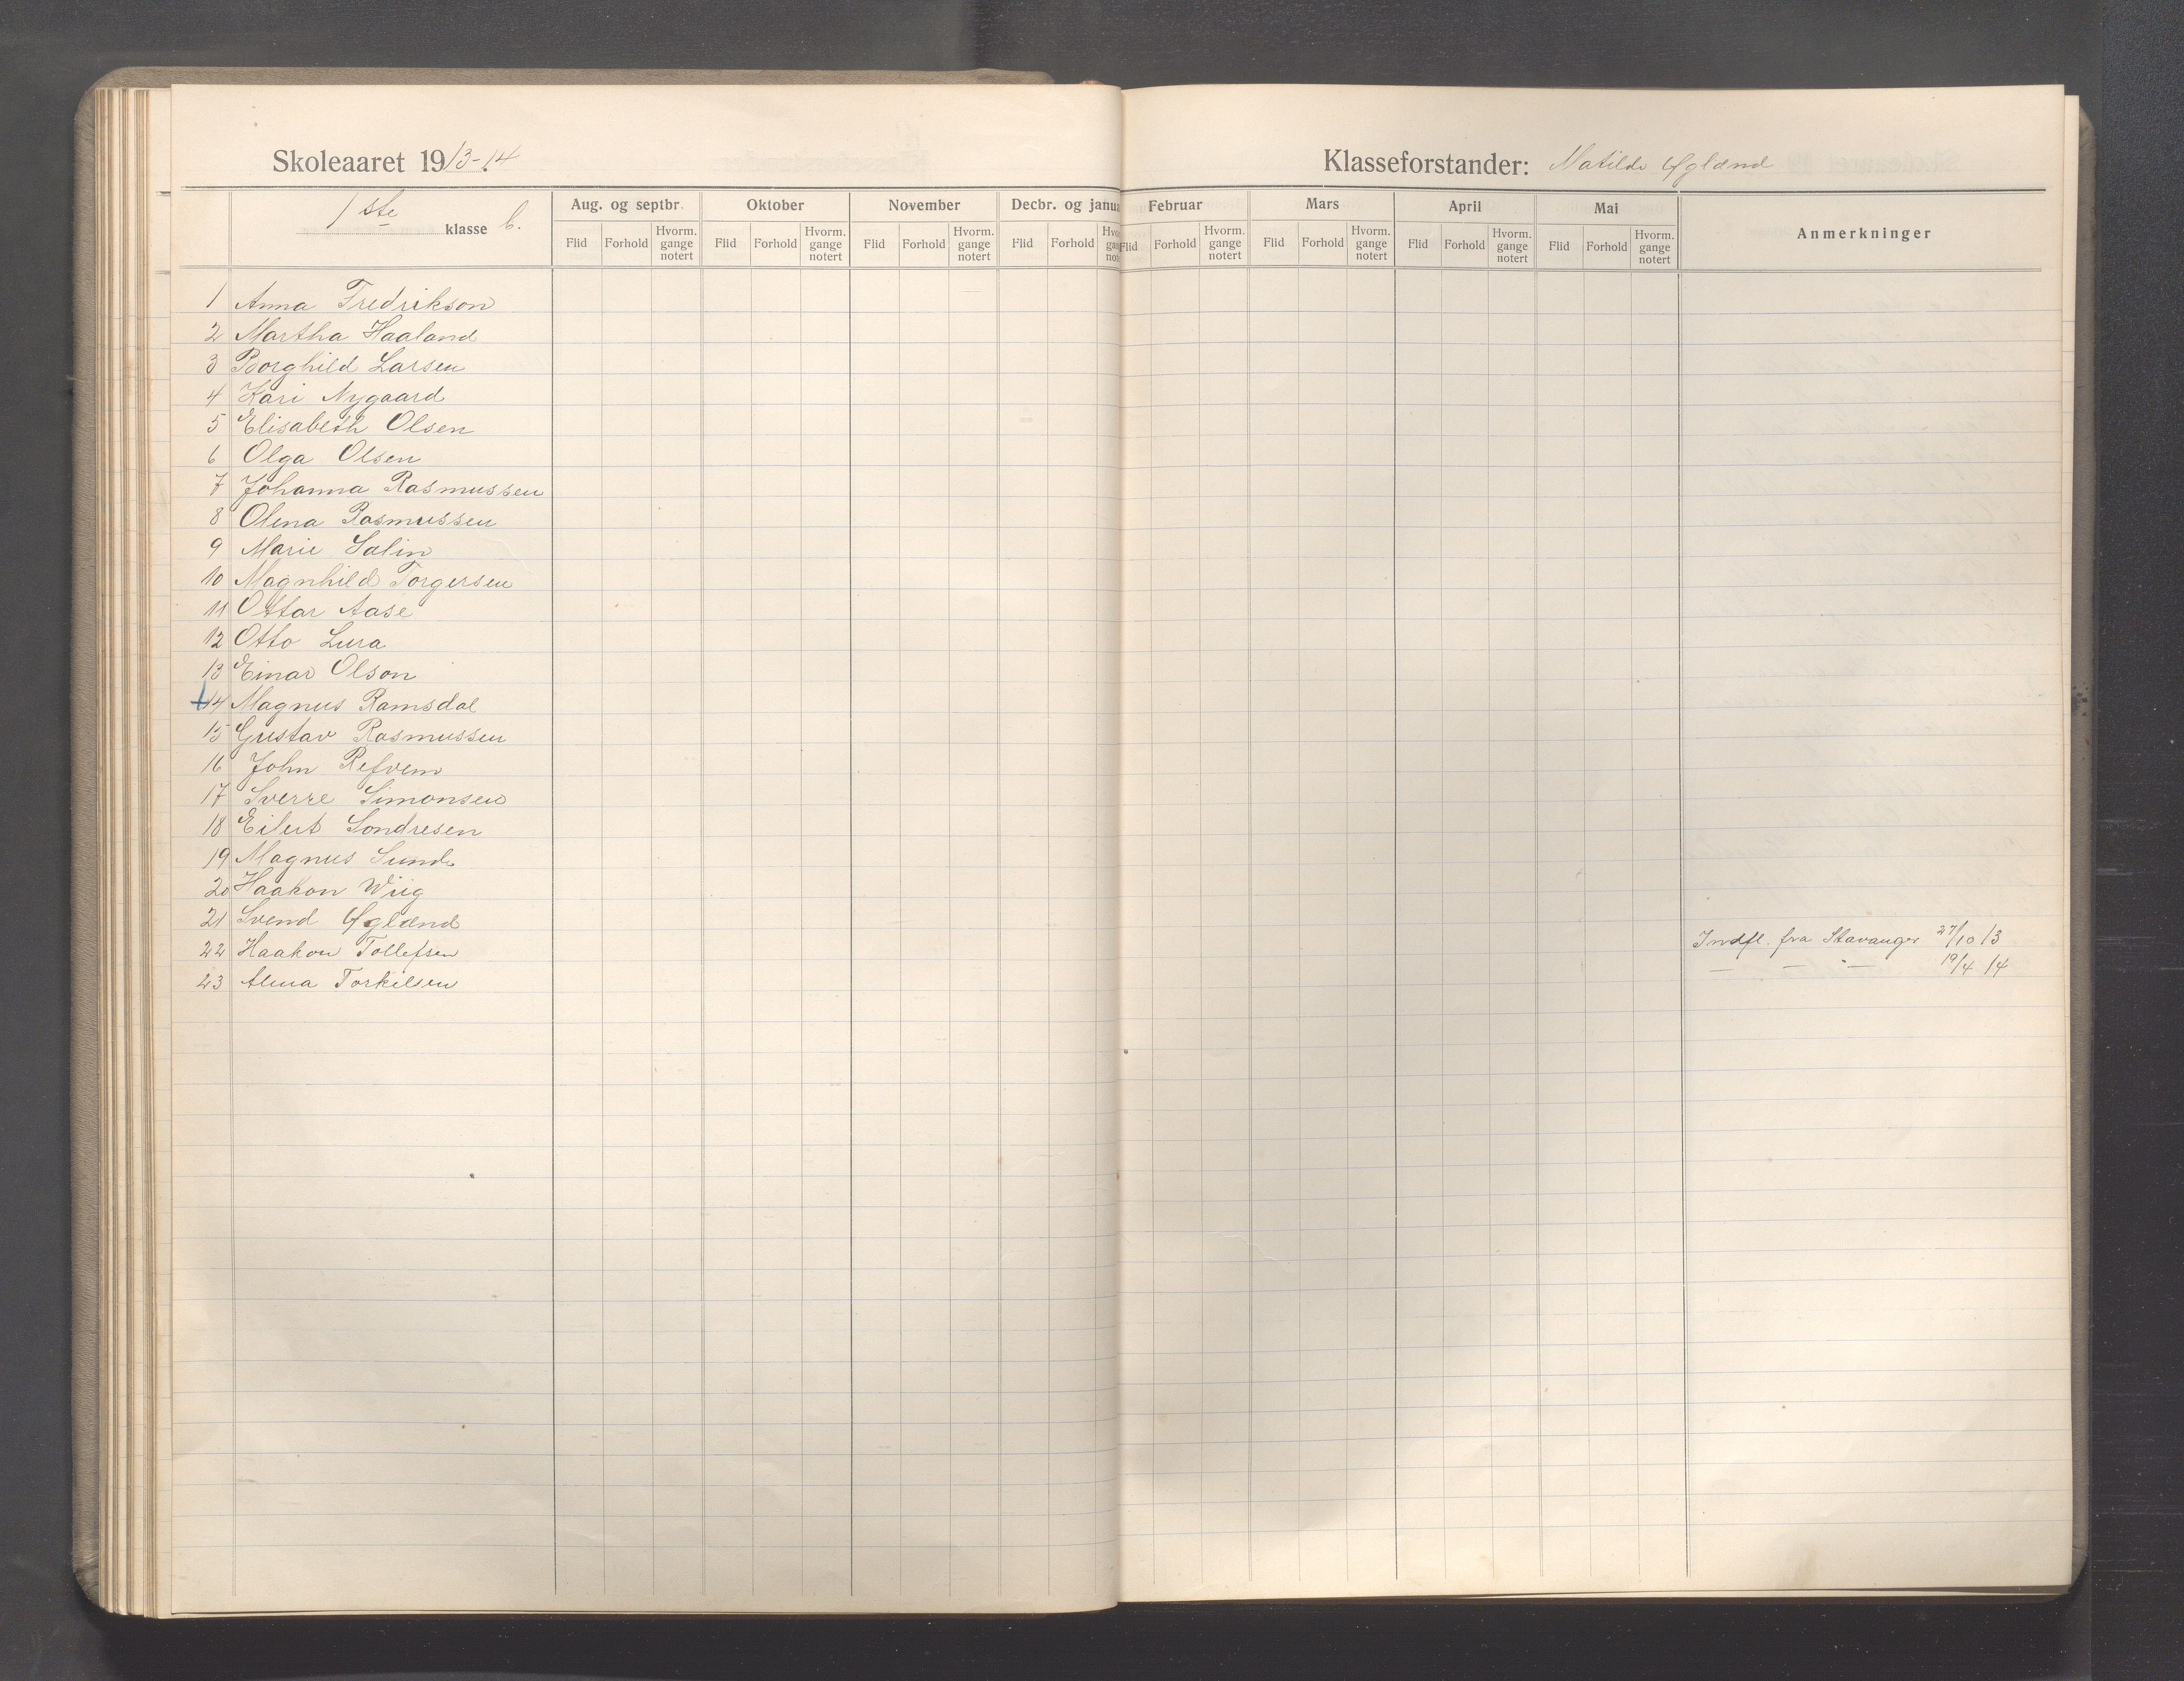 Skoleaaret 1913-14
Klasseforstander: Matilde Øglænd
1ste klasse b.
Aug. og septbr. Oktober November Decbr. og janua Februar Mars April Mai Anmerkninger
Flid Forhold Hvorm. gange notert Flid Forhold Hvorm. gange notert Flid Forhold Hvorm. gange notert Flid Forhold Flid Forhold Hvorm. gange notert Flid Forhold Hvorm. gange notert Flid Forhold Hvorm. gange notert Flid Forhold Hvorm. gange notert
1 Anna Fredrikson
2 Martha Haaland
3 Borghild Larsen
4 Kari Nygaard
5 Elisabeth Olsen
6 Olga Olsen
7 Johanna Rasmussen
8 Olena Rasmussen
9 Marie Salin
10 Magnhild Torgersen
11 Ottar Aase
12 Otto Lura
13 Einar Olson
14 Magnus Ramsdal
15 Gustav Rasmussen
16 John Refvem
17 Sverre Simonsen
18 Eilert Sondresen
19 Magnus Sunde
20 Haakon Wiig
21 Svend Øglænd
22 Haakon Tollefsen Indfl. fra Stavanger 27/10 13
23 Alma Torkilsen — — — 19/4 14